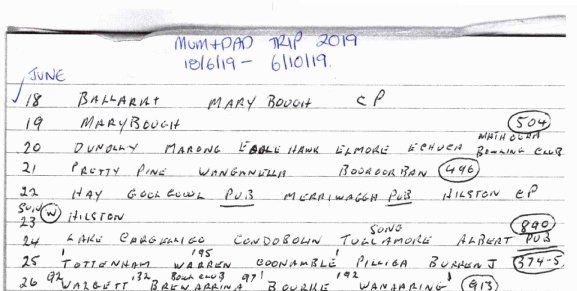 MUM+DAD TRIP 2019
18/6/19 – 6/10/19.
JUNE
18 BALLARAT MARYBOUGH CP
19 MARYBOUGH 504
20 DUNOLLY MARONG EAGLEHAWK ELMORE ECHUCA MATHOURA BOWLING CLUB
21 PRETTY PINE WANGANELLA BOOROORBAN 496
22 HAY GOOLGOWL PUB MERRIWAGGA PUB HILSTON CP
23 SUN W HILSTON
24 LAKE CARGELLIGO CONDOBOLIN TULLAMORE ALBERT PUB 890
25 TOTTENHAM WARREN 195 COONAMBLE PILLIGA BURREN J 374-5
26 92 WALGETT 132 BREWARRINA BOWL CLUB 97 BOURKE 192 WANAARING 913